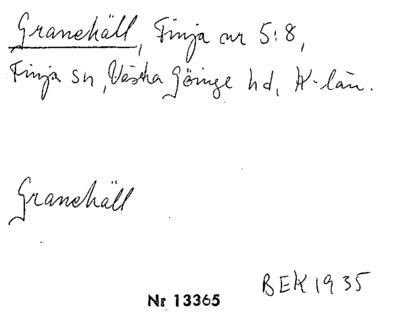 Granehäll, Finja nr 5:8,
Finja sn, Västra Göinge hd, K-län.
Granehäll
Nr 13365
BEK 1935